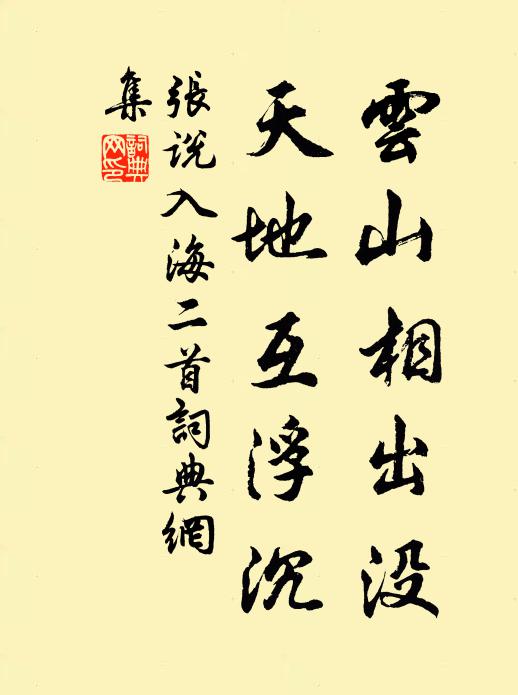 雲山相出没
天地互浮沉
張説入海二首詞典網
集
詞典
网印